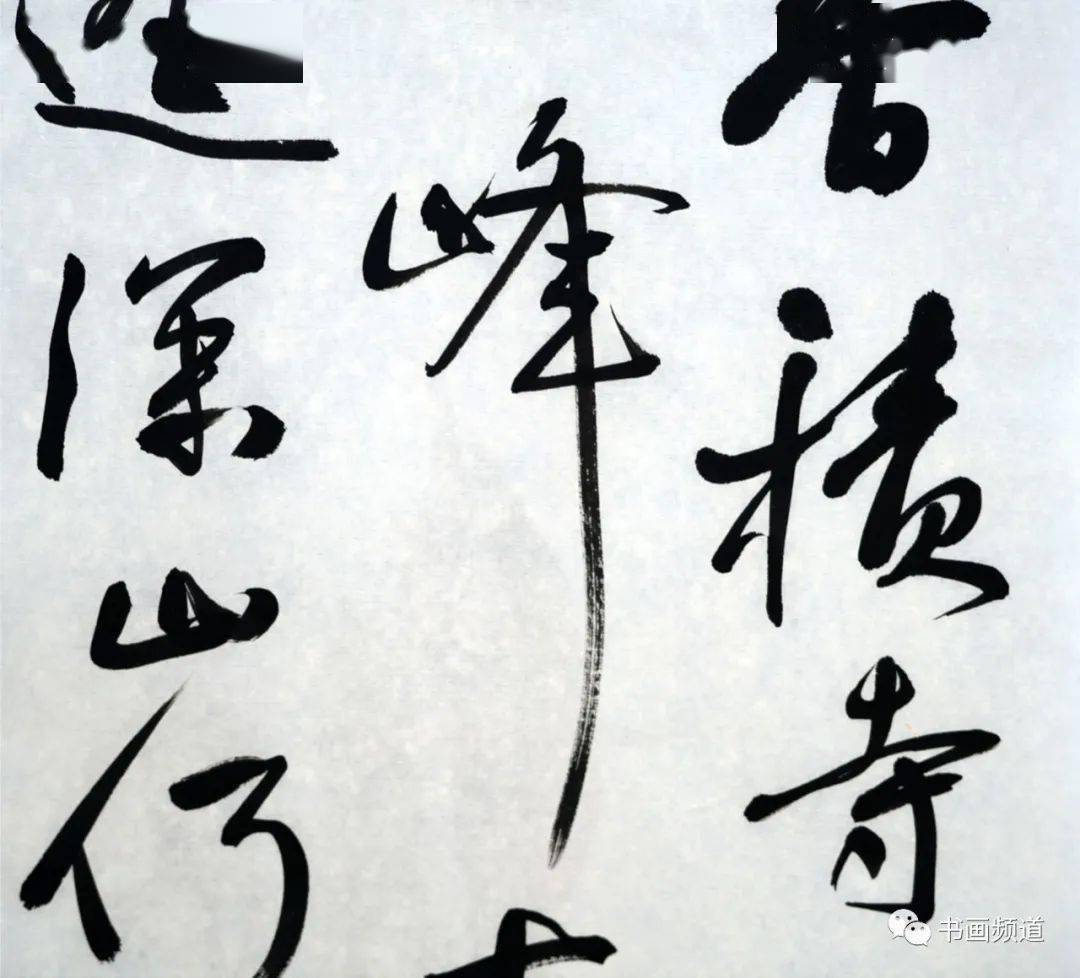 香積寺
峰古
逕深山何
书画频道